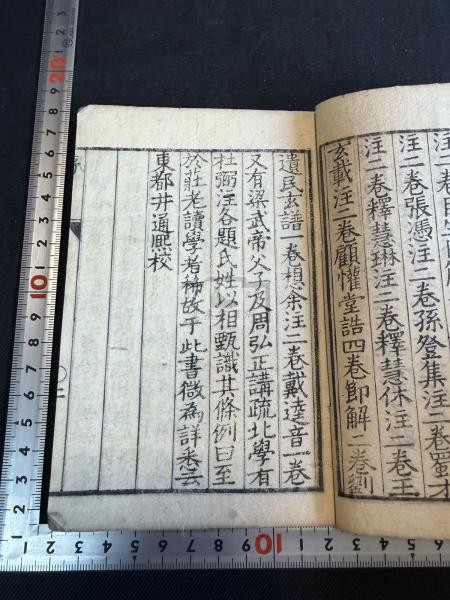 注二卷張馮注二卷孫登集注二卷蜀才
注二卷釋慧琳注二卷釋慧休注二卷王
玄載注二卷顧懽堂誥四卷節解二卷劉
遺民玄譜一卷想余注二卷戴逵音一卷
又有梁武帝父子及周弘正講疏北學有
杜弼注各題氏姓以相甄識其條例曰至
於莊老讀學者稀故于此書微為詳悉云
東都井通熙校